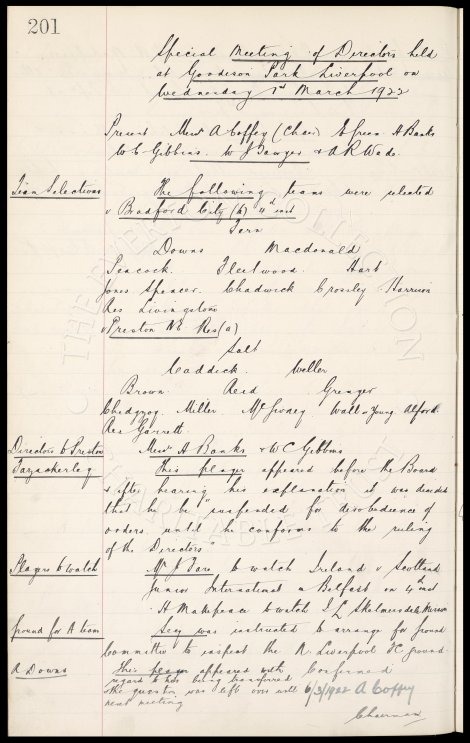 201
Special Meeting of Directors held
at Goodison Park Liverpool on
Wednesday 1st March 1922
Present Messrs A Coffey (Chair) E Green A Banks
W C Gibbins. W J Sawyer & A R Wade.
Team Selections The following teams were selected
v Bradford City (h) 4th inst
Fern
Downs Macdonald
Peacock. Fleetwood. Hart
Jones Spencer. Chadwick Crossley Harrison
Res Livingstone
v Preston NE Res (a)
Salt
Caddick. Weller
Brown Reid Grenyer
Chedgzoy. Miller. Wall or Young Alford.
Res Garrett.
Directors to Preston Messrs A Banks & W C Gibbins
This player appeared before the Board
& after hearing his explanation it was decided
that he be "suspended for disobedience of
orders until he conforms to the ruling
of the Directors"
Players to watch Mr J to watch Ireland v Scotland
Junior International in Belfast on 4th inst
H Makepeace to watch Skelmersdale
Ground for A team Secy was instructed to arrange for Ground
Committee to inspect the N. Liverpool FC ground
R Downs This player appeared with Confirmed
regard to his being transferred
the question was left over until 6/3/1922 A Coffey
next meeting
Chairman
THE EVERTON COLLECTION